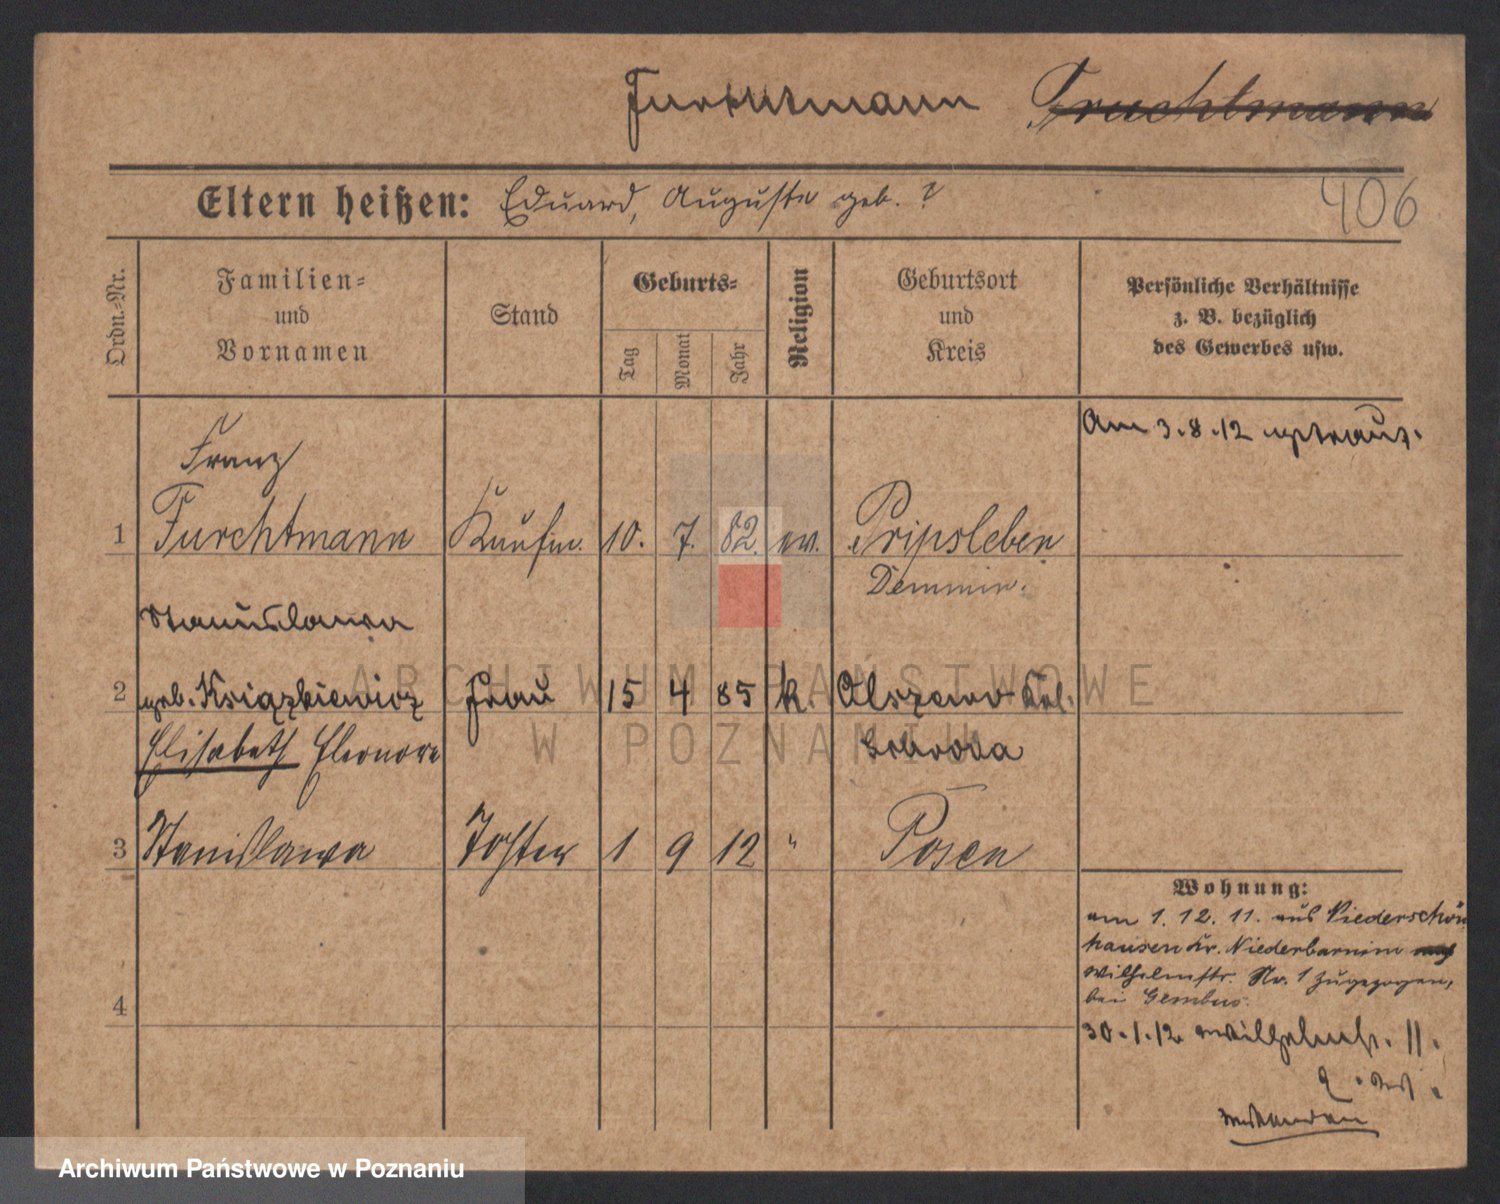 Furchtmann Fruchtmann
Eltern heißen: Eduard, Auguste geb. ?
406
Ordn.-Nr.
Familien-
und
Vornamen
Stand
Geburts-
Tag
Monat
Jahr
Religion
Geburtsort
und
Kreis
Persönliche Verhältnisse
z. B. bezüglich
des Gewerbes usw.
Am 3.8.12 getraut.
Franz
1 Furchtmann Kaufm. 10. 7. 82. ev. Pripsleben
Demmin.
Stanislawa
2 geb. Książkiewicz Frau 15 4 85 k.
Elisabeth Eleonore
3 Stanislawa Tochter 1 9 12 " Posen
4
Wohnung:
am 1. 12. 11. aus Niederschön
hausen Kr. Niederbarnim
Wilhelmstr. Nr. 1 zugezogen,
bei
30.1.12 Wilhelmstr. 11.
ARCHIWUM PAŃSTWOWE
W POZNANIU
Archiwum Państwowe w Poznaniu